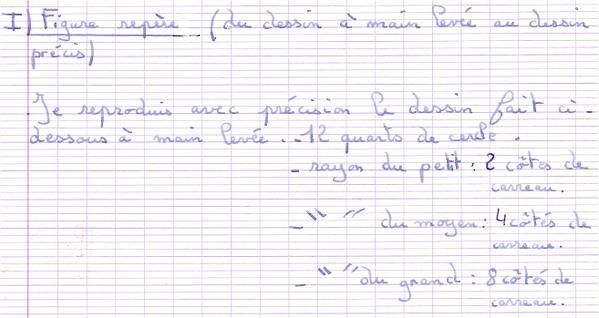 I) Figure repère (du dessin à main levée au dessin
précis)
Je reproduis avec précision le dessin fait ci-
dessous à main levée. - 12 quarts de cercle.
- rayon du petit : 2 côtés de
carreau.
- " " du moyen : 4 côtés de
carreau.
- " " du grand : 8 côtés de
carreau.